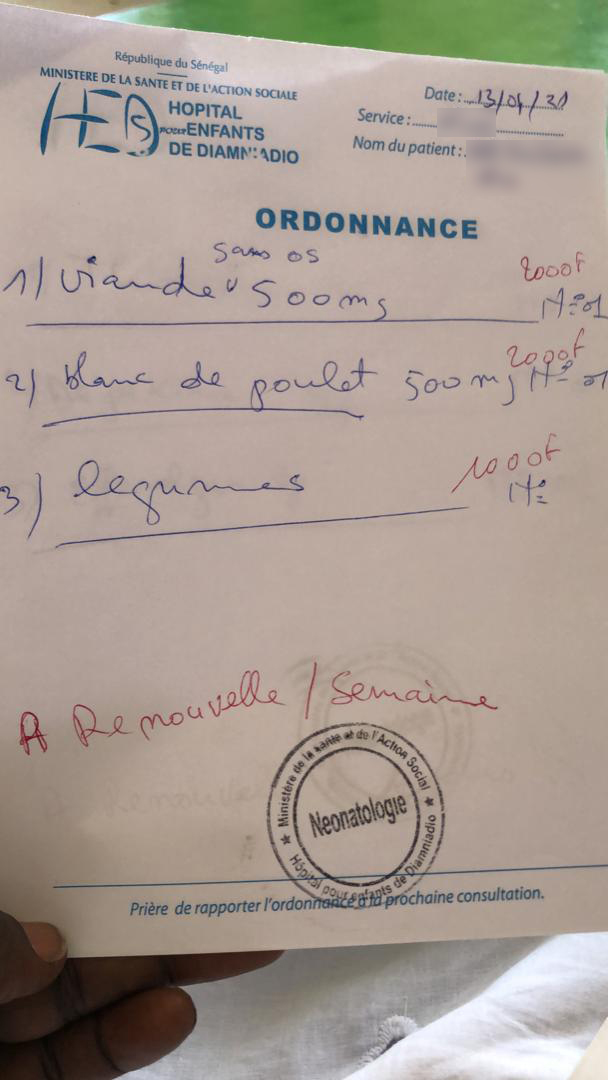 République du Sénégal
MINISTERE DE LA SANTE ET DE L'ACTION SOCIALE
HOPITAL
pour ENFANTS
DE DIAMNIADIO
Date : 13/04/21
Service :
Nom du patient :
ORDONNANCE
sans os
1) Viande 500 mg
2000f
N=01
2) blanc de poulet 500 mg N=01
2000f
3) legumes
1000f
N=
A Renouvelle / Semaine
Ministère de la santé et de l'Action Social
Neonatologie
Hôpital pour enfants de Diamniadio
Prière de rapporter l'ordonnance à la prochaine consultation.